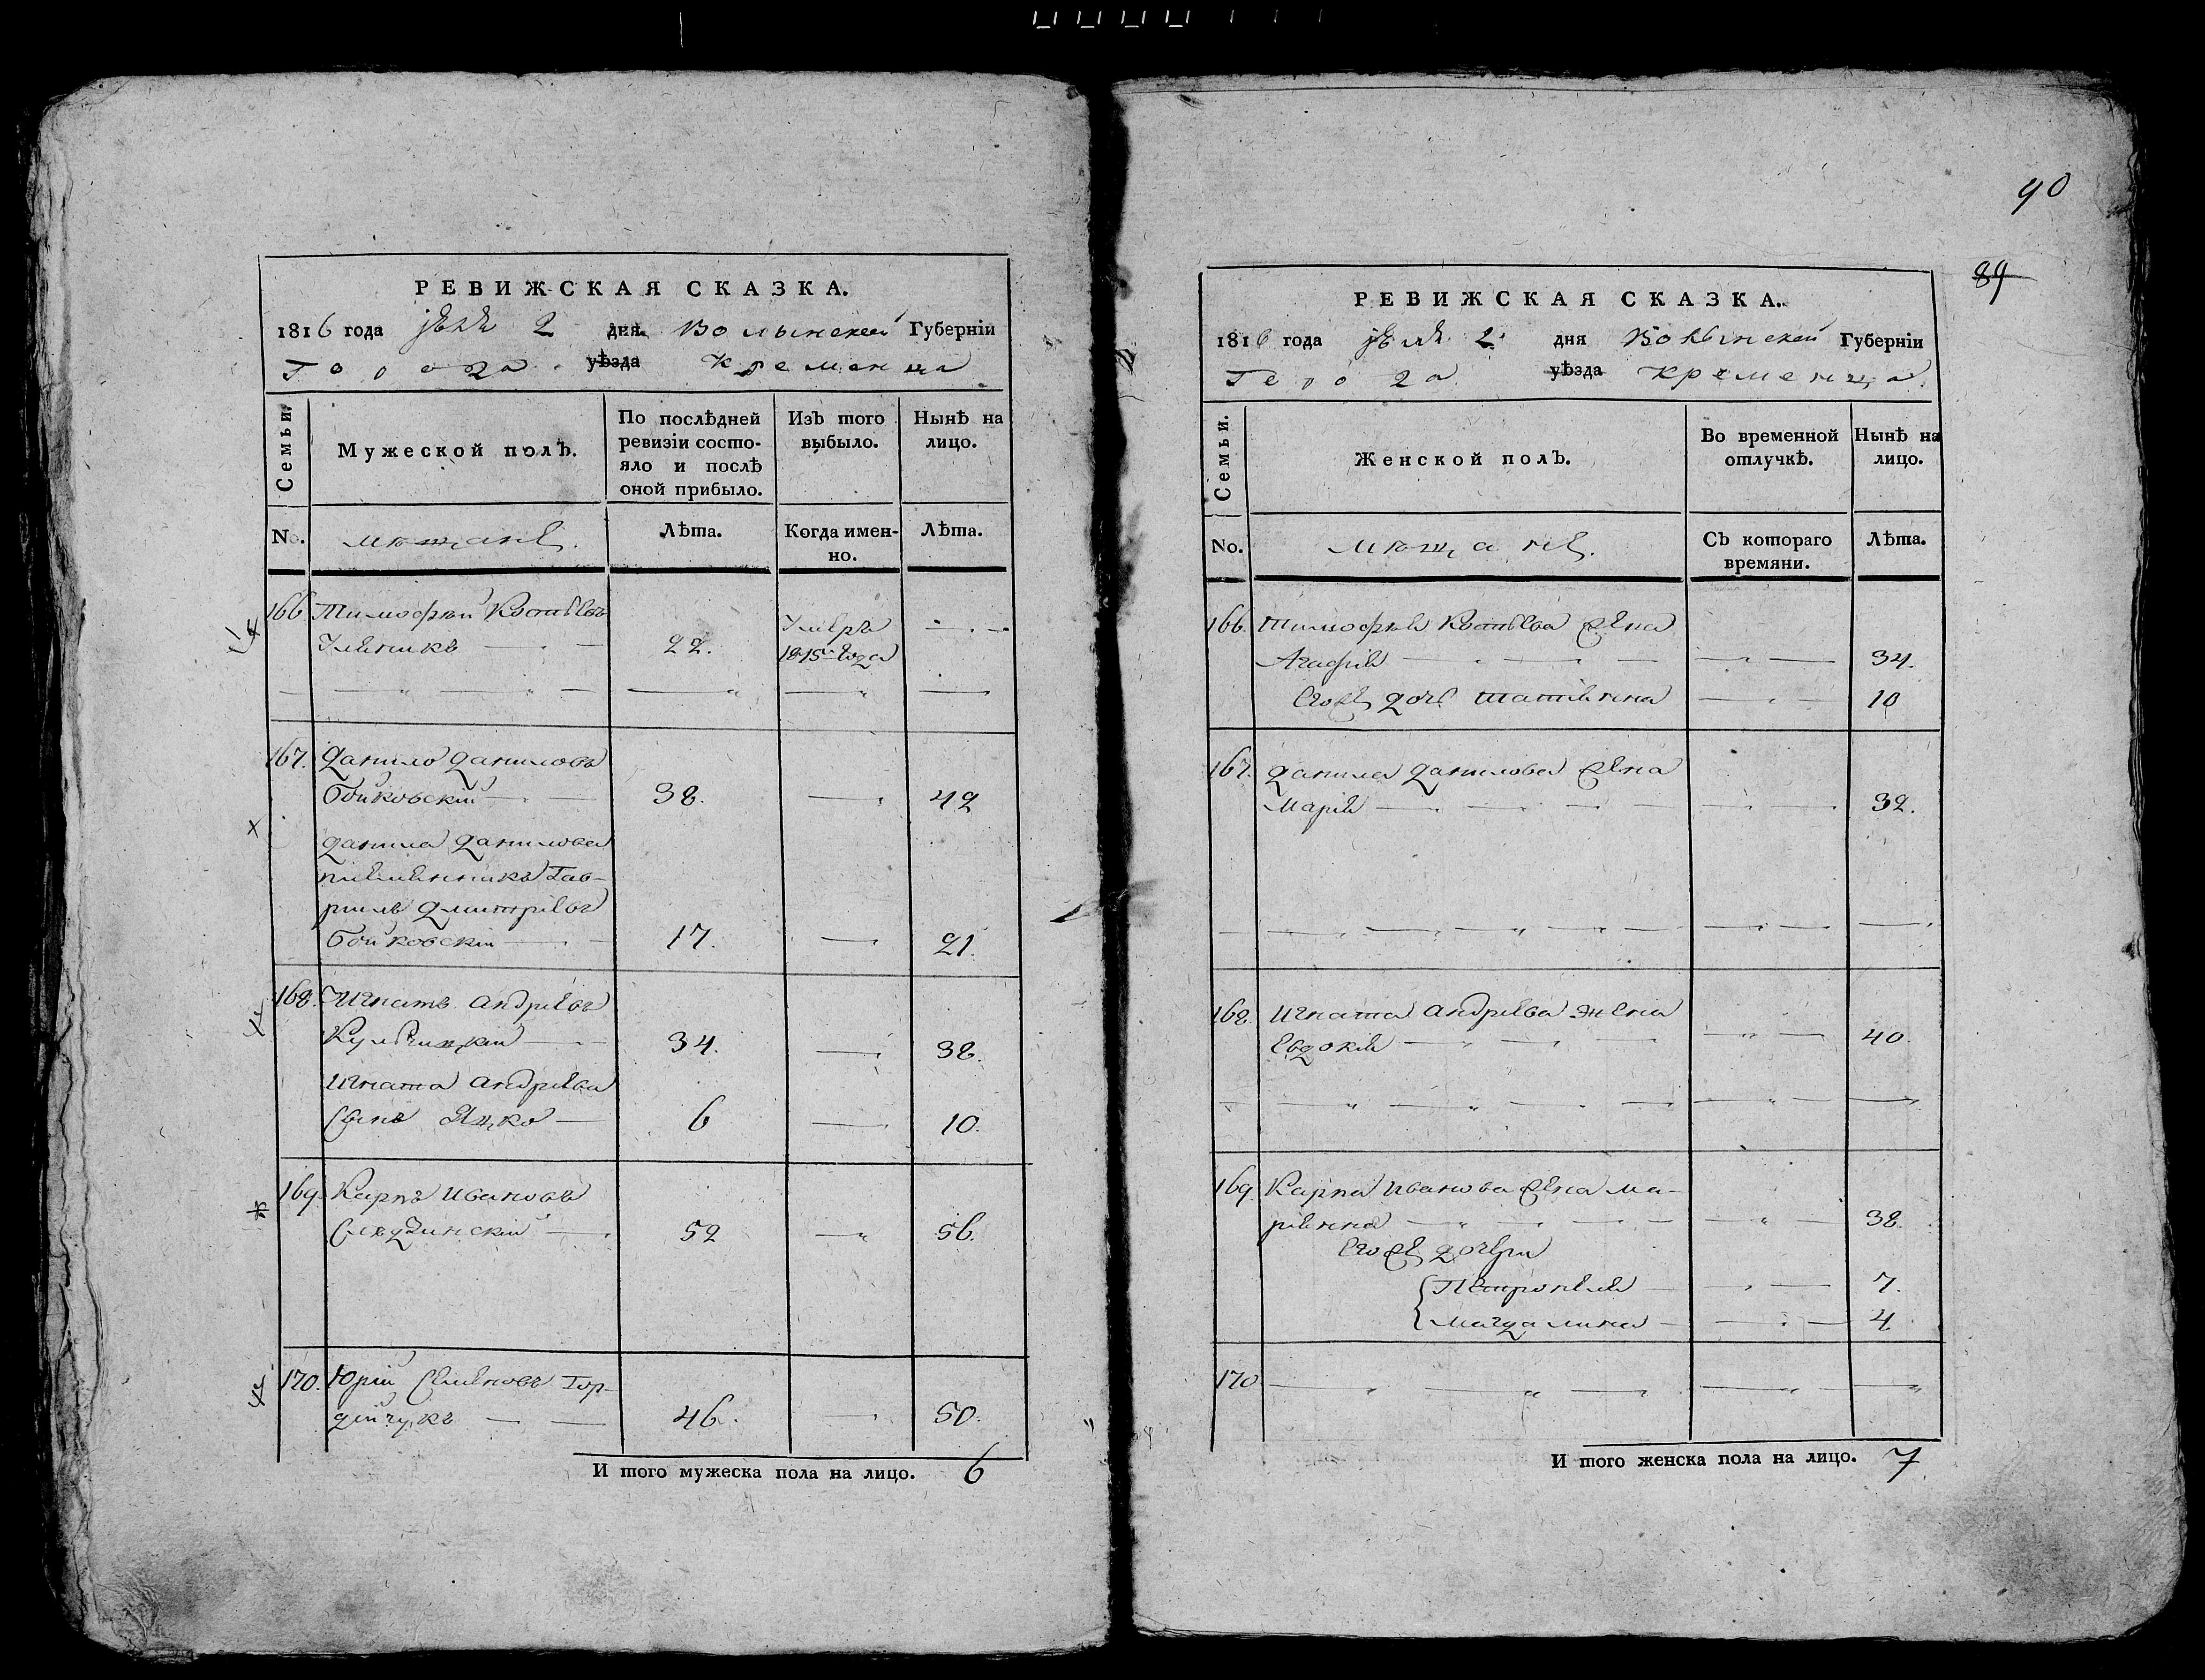 РЕВИЖСКАЯ СКАЗКА.
1816 года іюля 2 дня Волынской Губерніи
Города уѣзда Кременца
Семьи.
Мужеской полъ.
По послѣдней ревизіи состояло и послѣ оной прибыло.
Изъ того выбыло.
Нынѣ на лицо.
No.
мѣщане.
Лѣта.
Когда именно.
Лѣта.
166. Тимофѣй Костѣвъ
22. Умеръ 1815 года
167. Данило Даниловъ
Бойковскій 38. 42
Данила Данилова
племенникъ Гав-
риилъ Дмитріевъ
Бойковскій 17. 21.
168. Игнатъ Андріевъ
Кульчицкій 34. 38.
Игната Андріева
сынъ Яцко 6 10.
169. Карпъ Ивановъ
52 56.
170. Юрій Семеновъ Гор-
дійчукъ 46. 50.
И того мужеска пола на лицо. 6
90
89
РЕВИЖСКАЯ СКАЗКА.
1816 года іюля 2 дня Волынской Губерніи
Города уѣзда Кременца.
Семьи.
Женской полъ.
Во временной отлучкѣ.
Нынѣ на лицо.
No.
мѣщане.
Съ котораго времяни.
Лѣта.
166. Тимофѣя Костѣва жена
Агафія 34.
Его же дочь Татіянна 10
167. Данила Данилова жена
Марія 32.
168. Игната Андріева жена
Евдокія 40.
169. Карпа Иванова жена Ма-
ріянна 38.
Его же дочери
Петронеля 7.
Магдалина 4
170
И того женска пола на лицо. 7